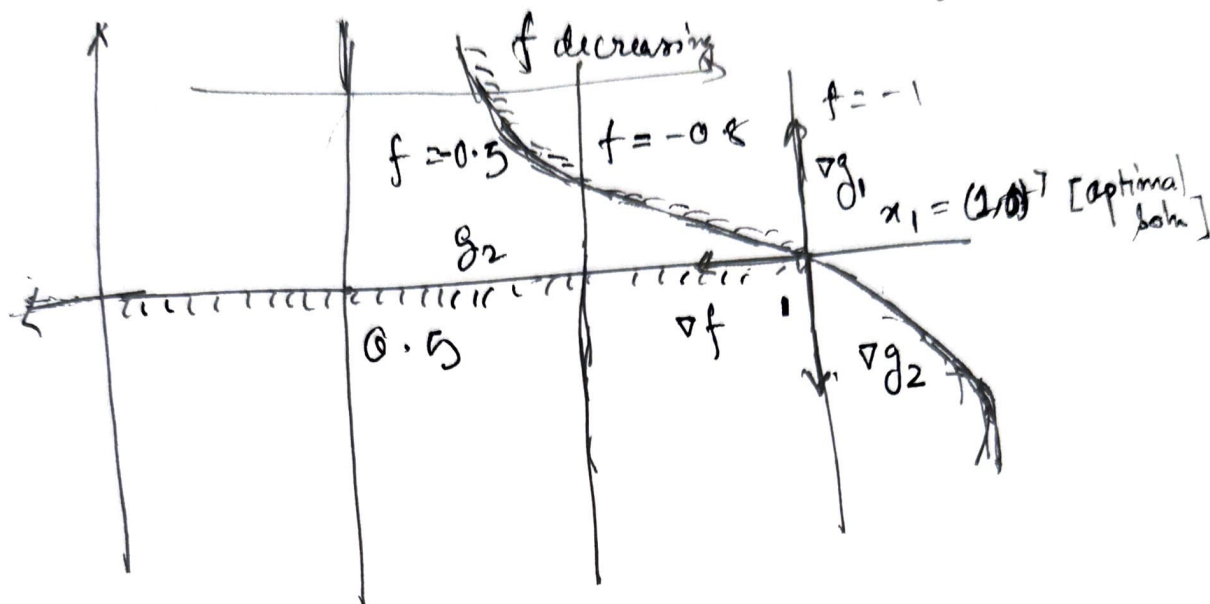 f decreasing
f = -1
f = 0.5
f = -0.8
∇g₁
x₁ = (1,0)ᵀ [optimal
soln]
g₂
0.5
∇f
1
∇g₂